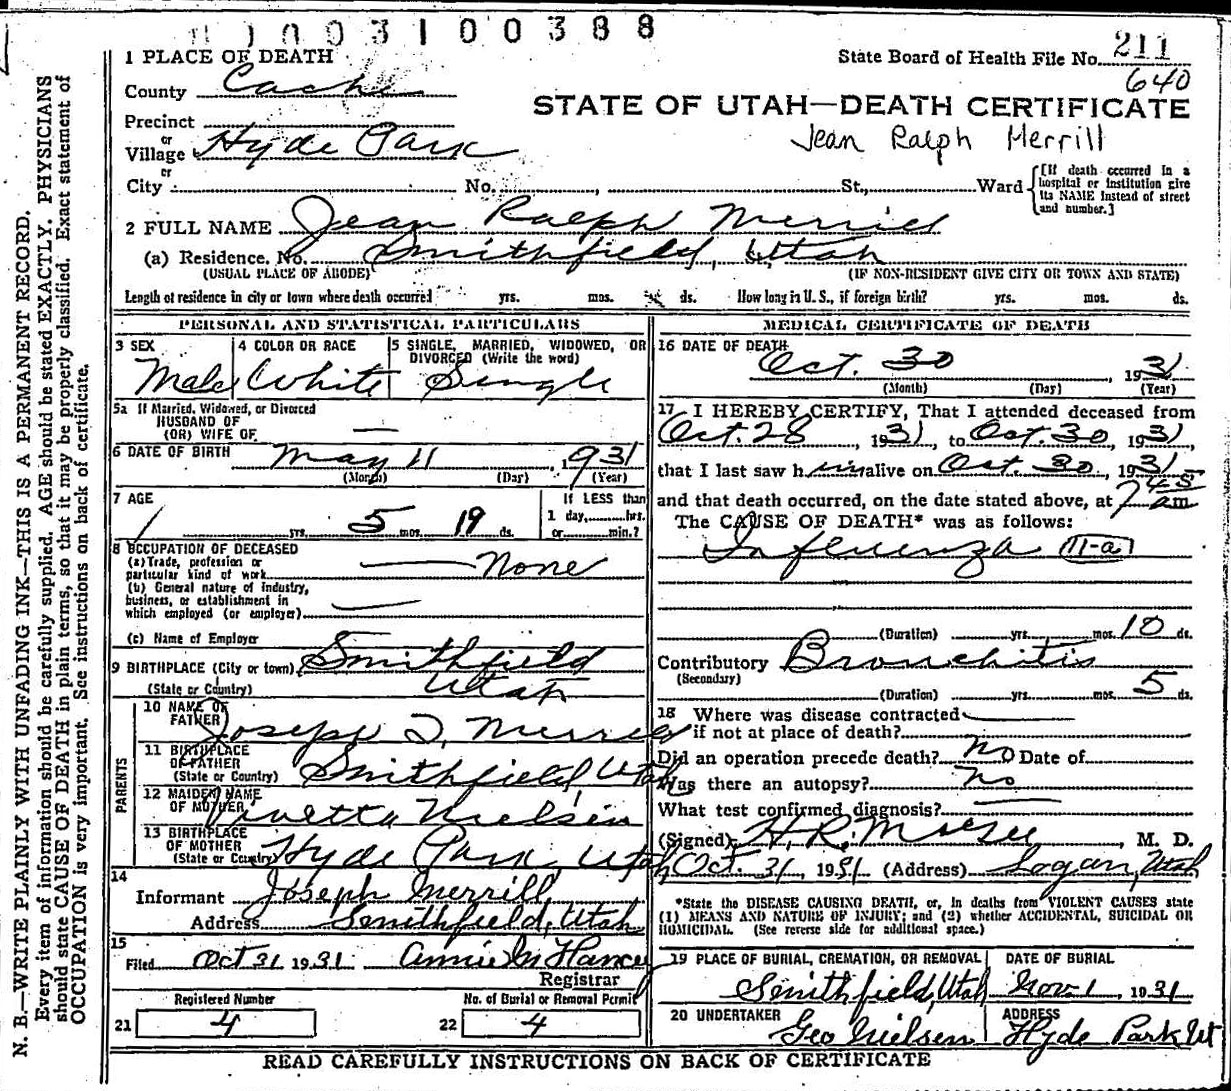 1003100388
1 PLACE OF DEATH
State Board of Health File No. 211
640
County Cache
STATE OF UTAH—DEATH CERTIFICATE
Precinct
or
Village Hyde Park
Jean Ralph Merrill
or
City No. , St., Ward
[If death occurred in a hospital or institution give its NAME instead of street and number.]
2 FULL NAME Jean Ralph Merrill
(a) Residence, No. Smithfield, Utah
(USUAL PLACE OF ABODE) (IF NON-RESIDENT GIVE CITY OR TOWN AND STATE)
Length of residence in city or town where death occurred yrs. mos. ds. How long in U. S., if foreign birth? yrs. mos. ds.
PERSONAL AND STATISTICAL PARTICULARS
3 SEX 4 COLOR OR RACE 5 SINGLE, MARRIED, WIDOWED, OR
DIVORCED (Write the word)
Male White Single
5a If Married, Widowed, or Divorced
HUSBAND OF
(OR) WIFE OF —
6 DATE OF BIRTH May 11, 1931
(Month) (Day) (Year)
7 AGE If LESS than
1 day, hrs.
/ yrs. 5 mos. 19 ds. or min.?
8 OCCUPATION OF DECEASED
(a) Trade, profession or
particular kind of work None
(b) General nature of industry,
business, or establishment in
which employed (or employer)
(c) Name of Employer
9 BIRTHPLACE (City or town) Smithfield
(State or Country) Utah
PARENTS
10 NAME OF
FATHER Joseph J. Merrill
11 BIRTHPLACE
OF FATHER
(State or Country) Smithfield, Utah
12 MAIDEN NAME
OF MOTHER Vinetta Nielsen
13 BIRTHPLACE
OF MOTHER
(State or Country) Hyde Park, Utah
14
Informant Joseph Merrill,
Address Smithfield, Utah
15
Filed Oct 31 1931 Annie M Hancey
Registrar
Registered Number No. of Burial or Removal Permit
21 4 22 4
MEDICAL CERTIFICATE OF DEATH
16 DATE OF DEATH
Oct. 30, 1931
(Month) (Day) (Year)
17 I HEREBY CERTIFY, That I attended deceased from
Oct. 28, 1931, to Oct. 30, 1931,
that I last saw him alive on Oct. 30, 1931
and that death occurred, on the date stated above, at 7 45 am
The CAUSE OF DEATH* was as follows:
Influenza 11-a
(Duration) yrs. mos. 10 ds.
Contributory Bronchitis
(Secondary)
(Duration) yrs. mos. 5 ds.
18 Where was disease contracted
if not at place of death?
Did an operation precede death? no Date of
Was there an autopsy? no
What test confirmed diagnosis?
(Signed) H. R. McGee, M. D.
Oct. 31, 1931 (Address) Logan, Utah
*State the DISEASE CAUSING DEATH, or, in deaths from VIOLENT CAUSES state
(1) MEANS AND NATURE OF INJURY; and (2) whether ACCIDENTAL, SUICIDAL OR
HOMICIDAL. (See reverse side for additional space.)
19 PLACE OF BURIAL, CREMATION, OR REMOVAL DATE OF BURIAL
Smithfield, Utah Nov. 1, 1931
20 UNDERTAKER ADDRESS
Geo Nielsen Hyde Park Ut
READ CAREFULLY INSTRUCTIONS ON BACK OF CERTIFICATE
N. B.—WRITE PLAINLY WITH UNFADING INK—THIS IS A PERMANENT RECORD.
Every item of information should be carefully supplied. AGE should be stated EXACTLY. PHYSICIANS
should state CAUSE OF DEATH in plain terms, so that it may be properly classified. Exact statement of
OCCUPATION is very important. See instructions on back of certificate.